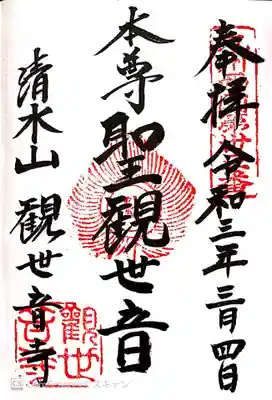 奉拝 令和三年三月四日
本尊 聖観世音
清水山 観世音寺
観世
音寺
CS スキャン